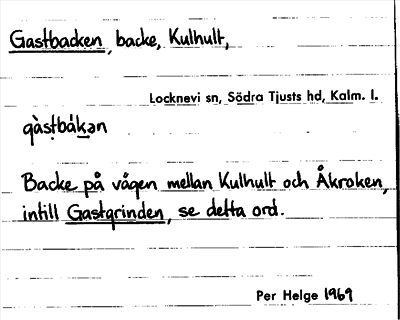 Gastbacken, backe, Kulhult,
Locknevi sn, Södra Tjusts hd, Kalm. l.
gàstbàkən
Backe på vägen mellan Kulhult och Åkroken,
intill Gastgrinden, se detta ord.
Per Helge 1969